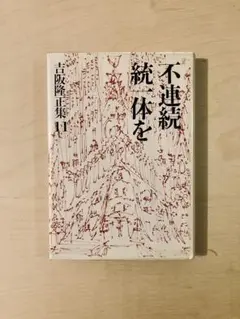 不連続
統一体を
吉阪隆正集11